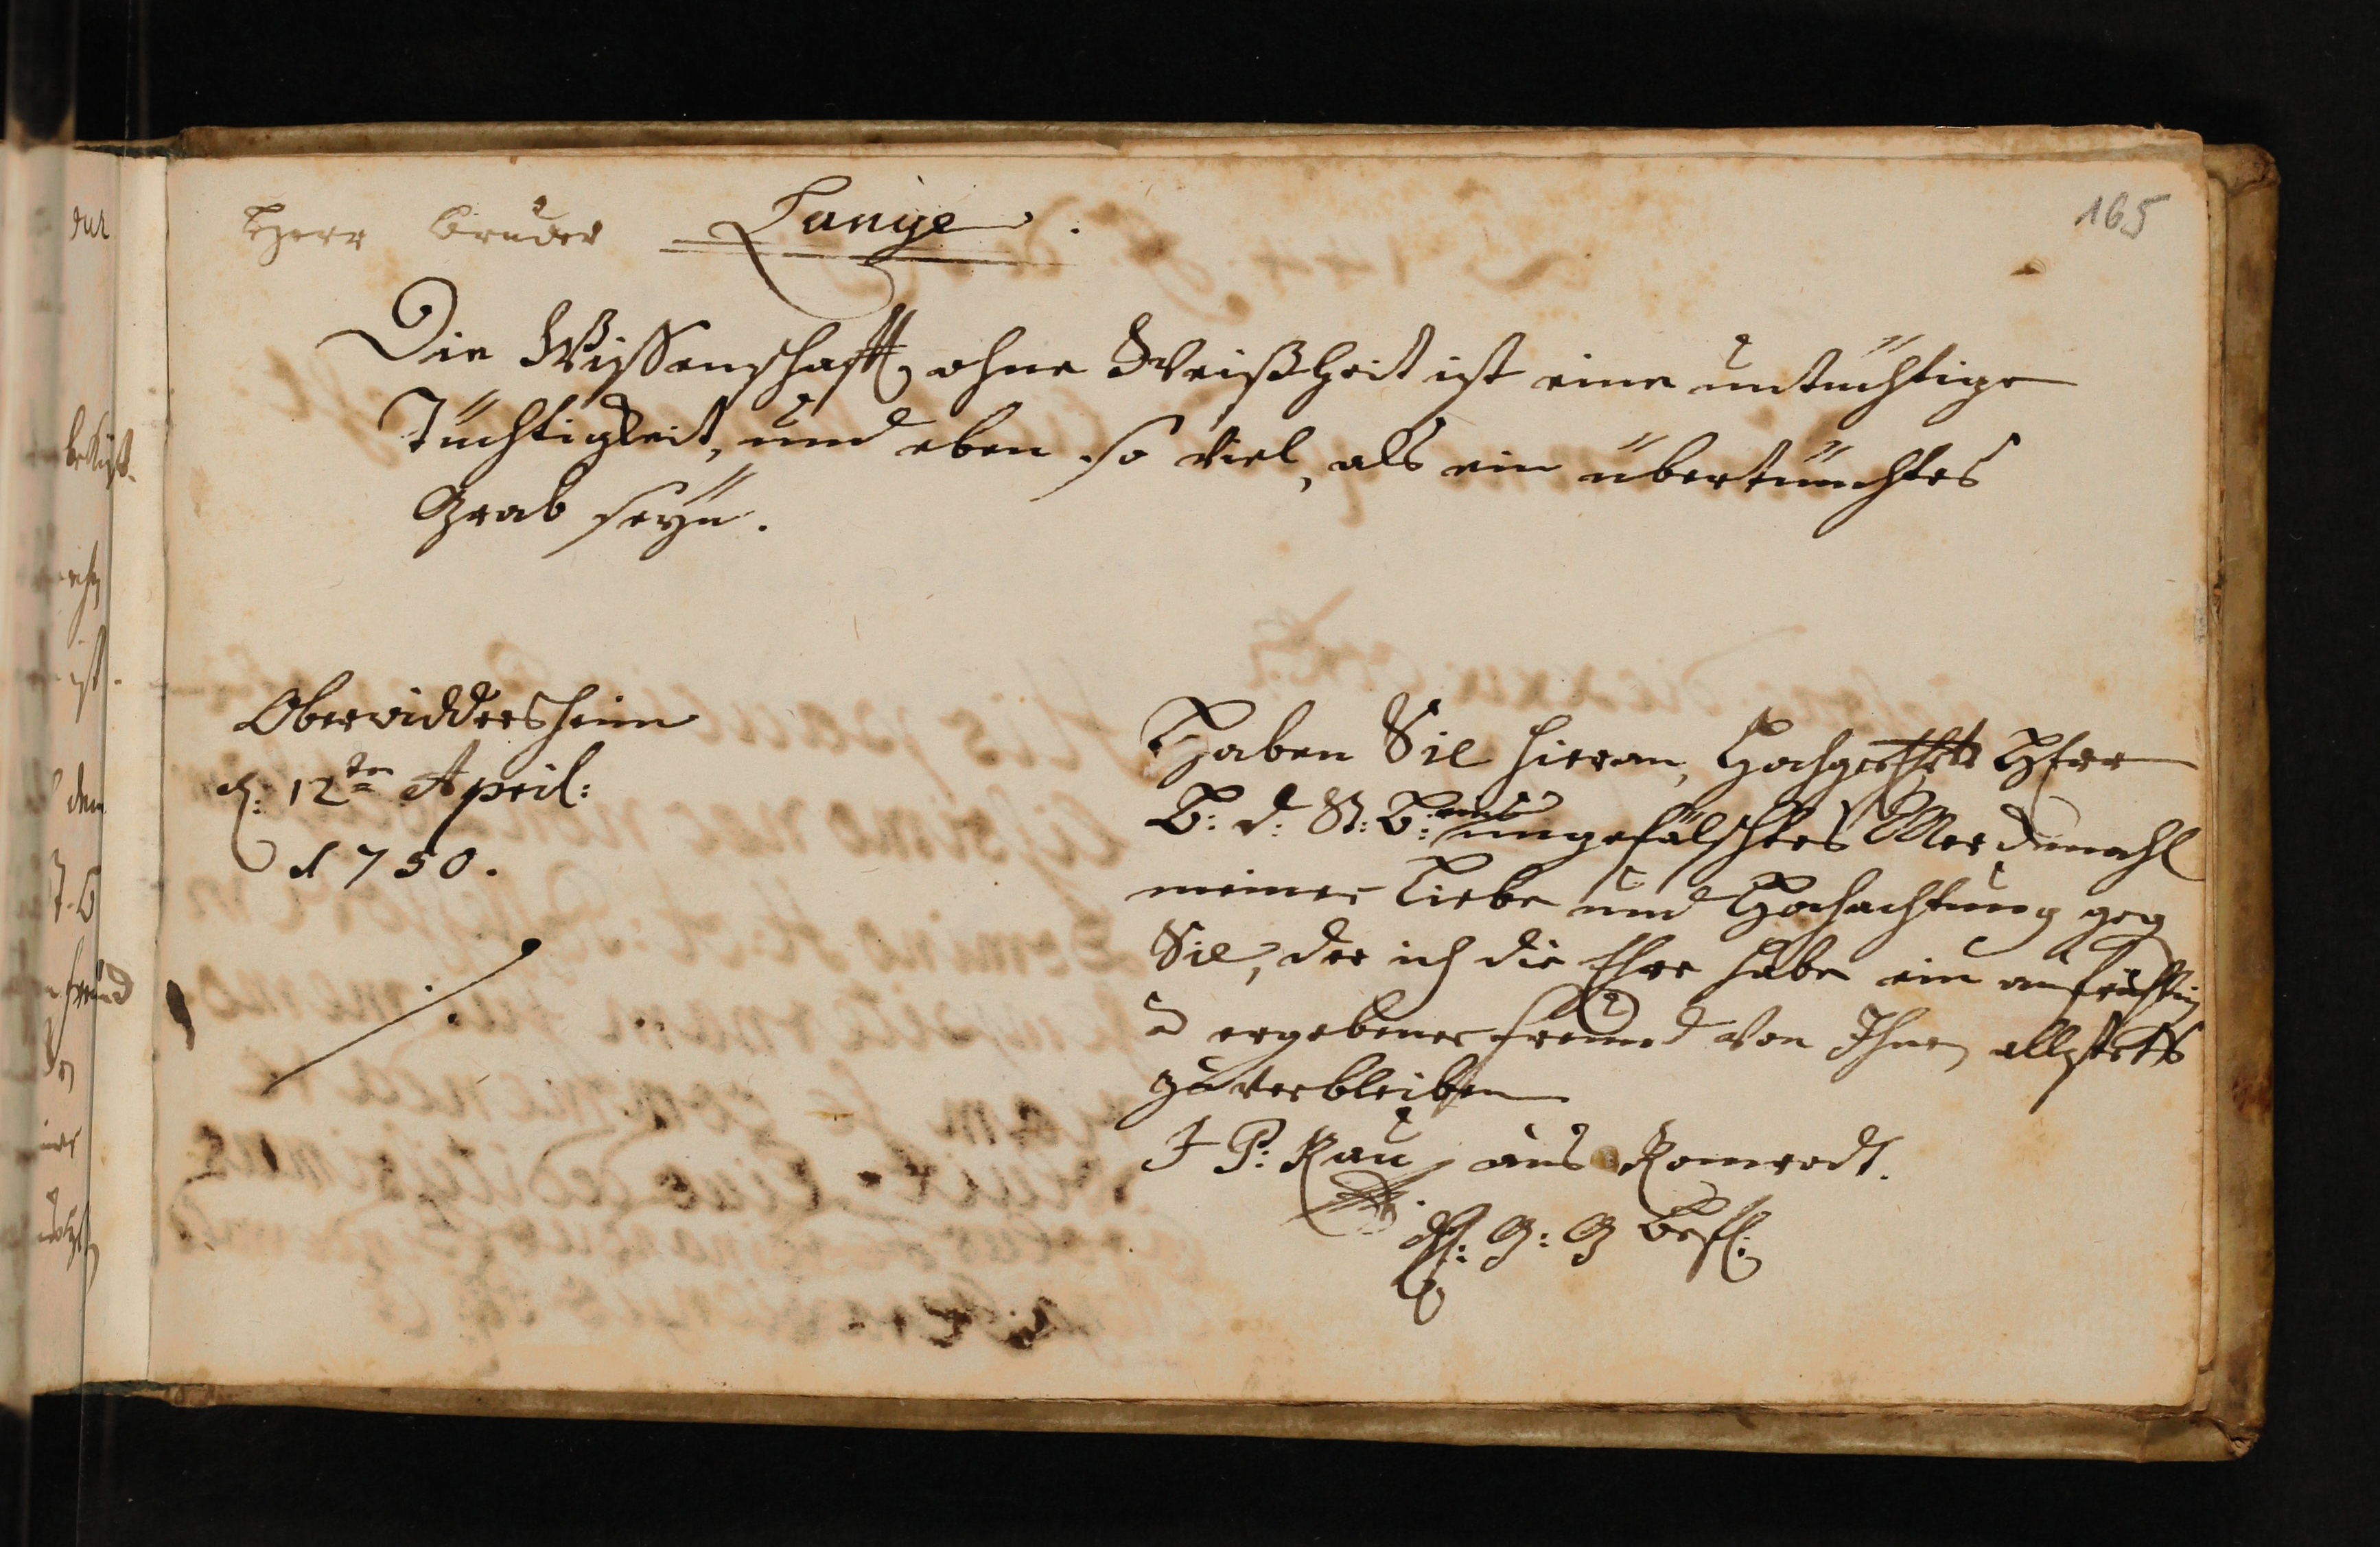 165
Herr Bruder Lange.
Die Wissenschafft ohne Weißheit ist eine untüchtige
Tüchtigkeit, und eben so viel, als ein übertünchtes
Grab seyn.
Oberwiddersheim
d: 12ten April:
1750.
Haben Sie hieran, Hochgeehrtester Herr
B: d: St: B: ungefälschtes Merckmahl
meiner Liebe und Hochachtung geg
Sie, der ich die Ehre habe ein aufrichtig
ergebener Freund von Ihnen allstets
zu verbleiben
J P: Rau aus Romrodt.
G: G Befl: